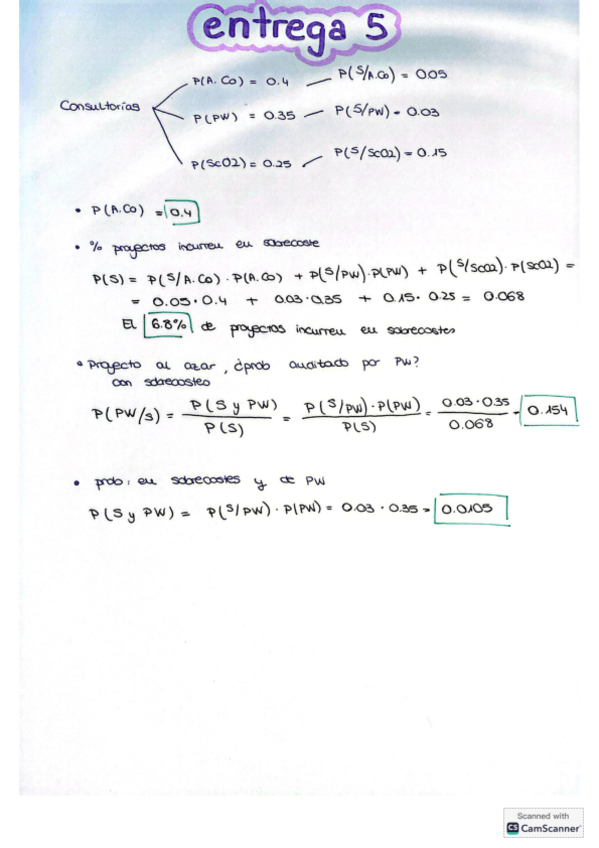 entrega 5
P(A.Co) = 0.4 — P(S/A.Co) = 0.05
Consultorías
P(PW) = 0.35 — P(S/PW) = 0.03
P(ScO2) = 0.25 — P(S/ScO2) = 0.15
• P(A.Co) = 0.4
• % proyectos incurren en sobrecoste
P(S) = P(S/A.Co) · P(A.Co) + P(S/PW) · P(PW) + P(S/ScO2) · P(ScO2) =
= 0.05 · 0.4 + 0.03 · 0.35 + 0.15 · 0.25 = 0.068
El 6.8% de proyectos incurren en sobrecostes
• Proyecto al azar, ¿prob auditado por PW?
con sobrecostes
P(PW/S) = P(S y PW) / P(S) = P(S/PW) · P(PW) / P(S) = 0.03 · 0.35 / 0.068 = 0.154
• prob: en sobrecostes y de PW
P(S y PW) = P(S/PW) · P(PW) = 0.03 · 0.35 = 0.0105
Scanned with
CS CamScanner